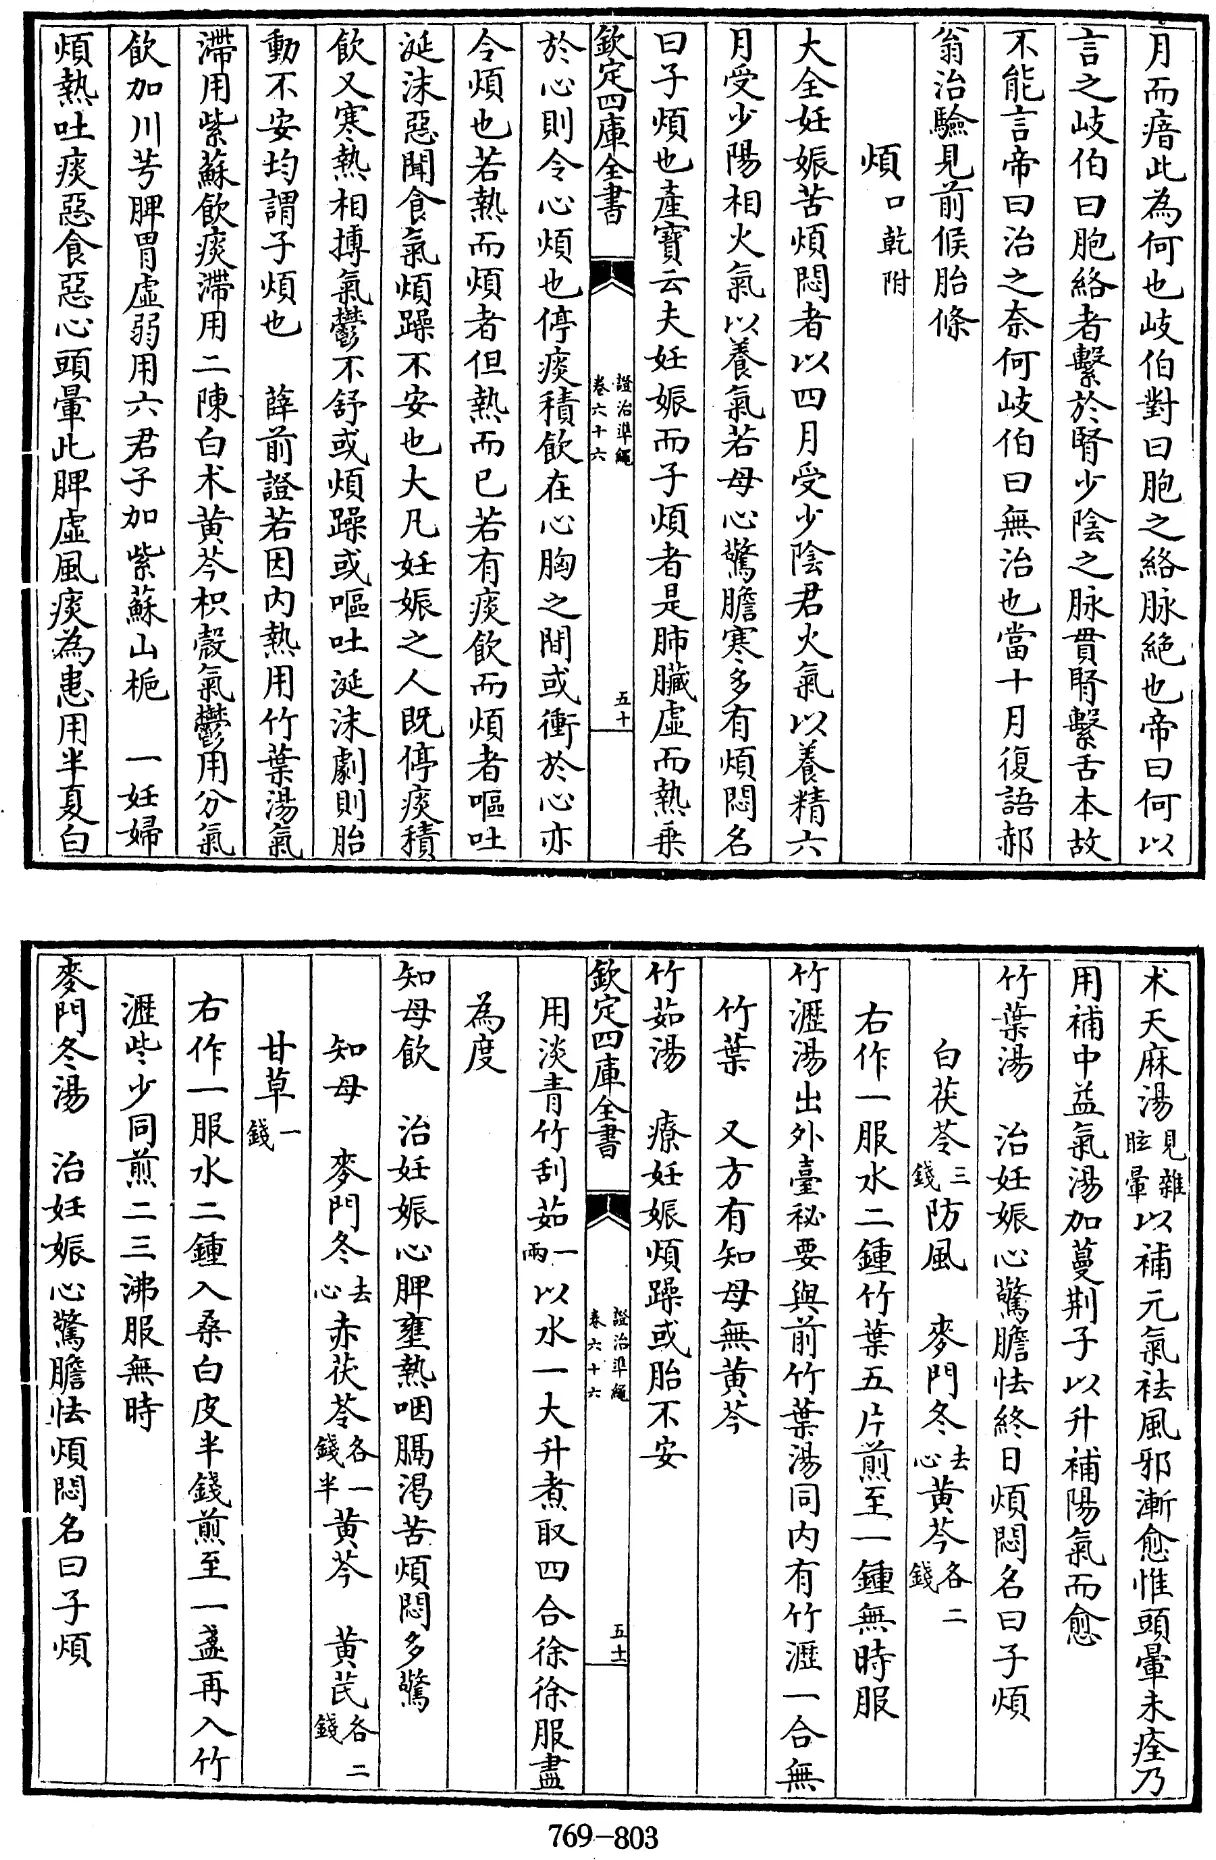 月而瘖此為何也岐伯對曰胞之絡脉絶也帝曰何以
言之岐伯曰胞絡者繫於腎少陰之脉貫腎繫舌本故
不能言帝曰治之奈何岐伯曰無治也當十月復語郝
翁治驗見前候胎條
煩口乾附
大全妊娠苦煩悶者以四月受少陰君火氣以養精六
月受少陽相火氣以養氣若母心驚膽寒多有煩悶名
曰子煩也產寶云夫妊娠而子煩者是肺臟虛而熱乗
欽定四庫全書
證治準繩
卷六十六
五十
於心則令心煩也停痰積飲在心胸之間或衝於心亦
令煩也若熱而煩者但熱而已若有痰飲而煩者嘔吐
涎沫惡聞食氣煩躁不安也大凡妊娠之人既停痰積
飲又寒熱相搏氣鬱不舒或煩躁或嘔吐涎沫劇則胎
動不安均謂子煩也　薛前證若因内熱用竹葉湯氣
滯用紫蘇飲痰滯用二陳白术黄芩枳殼氣鬱用分氣
飲加川芎脾胃虛弱用六君子加紫蘇山梔　一妊婦
煩熱吐痰惡食惡心頭暈此脾虛風痰為患用半夏白
术天麻湯見雜眩暈以補元氣祛風邪漸愈惟頭暈未痊乃
用補中益氣湯加蔓荆子以升補陽氣而愈
竹葉湯　治妊娠心驚膽怯終日煩悶名曰子煩
白茯苓三錢防風　麥門冬去心黄芩各二錢
右作一服水二鍾竹葉五片煎至一鍾無時服
竹瀝湯出外臺秘要與前竹葉湯同内有竹瀝一合無
竹葉　又方有知母無黄芩
竹茹湯　療妊娠煩躁或胎不安
欽定四庫全書
證治準繩
卷六十六
五十一
用淡青竹刮茹一兩以水一大升煮取四合徐徐服盡
為度
知母飲　治妊娠心脾壅熱咽膈渴苦煩悶多驚
知母　麥門冬去心赤茯苓各一錢半黄芩　黄芪各二錢
甘草一錢
右作一服水二鍾入桑白皮半錢煎至一盞再入竹
瀝些少同煎二三沸服無時
麥門冬湯　治妊娠心驚膽怯煩悶名曰子煩
769-803